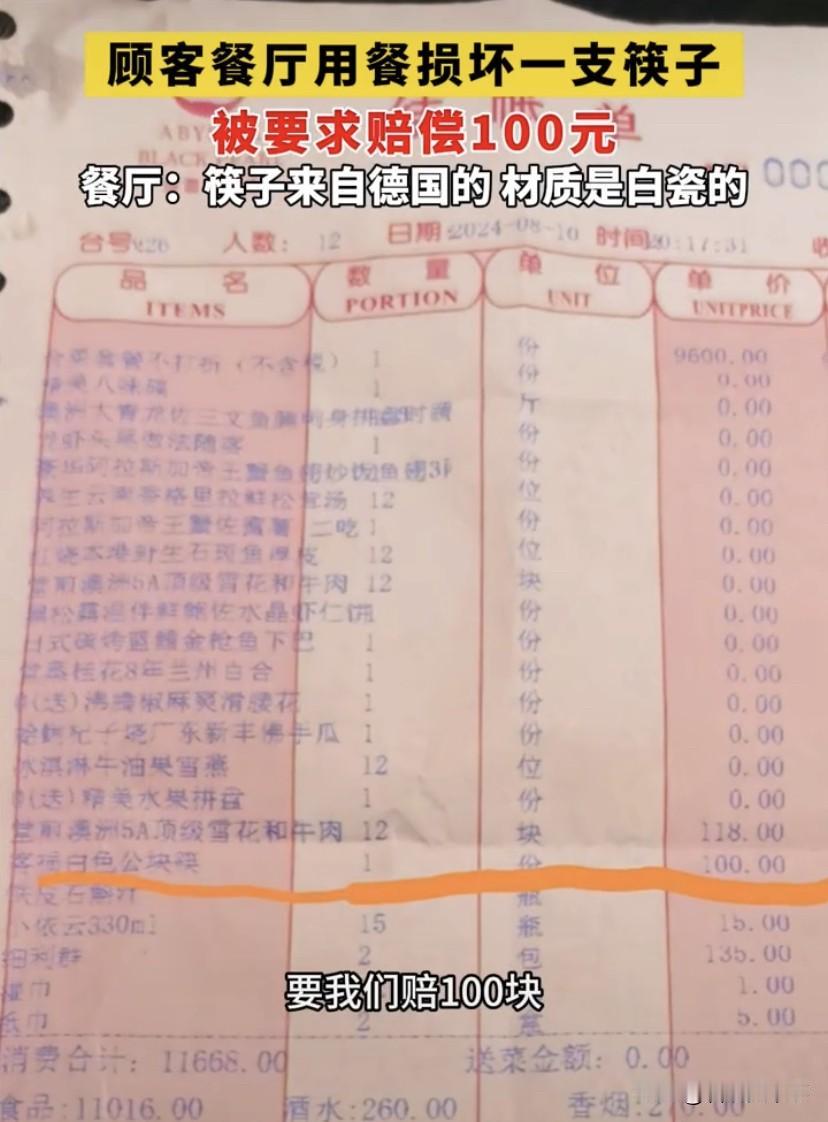 顾客餐厅用餐损坏一支筷子
被要求赔偿100元
餐厅：筷子来自德国的 材质是白瓷的
台号: 226 人数: 12 日期: 2024-08-10 时间20:17:31
品名 数量 单位 单价
ITEMS PORTION UNIT UNITPRICE
套餐不打折（不含税） 1 份 9600.00
八味碟 1 份 0.00
澳洲大青龙佐三文鱼 刺身拼盘时蔬 斤 0.00
龙虾头尾做法随客 1 份 0.00
阿拉斯加帝王蟹鱼翅炒饭 份 0.00
养生云南香格里拉鲜松茸汤 12 位 0.00
阿拉斯加帝王蟹佐 二吃 1 份 0.00
红烧本港野生石斑鱼厚皮 12 位 0.00
堂煎澳洲5A顶级雪花和牛肉 12 块 0.00
黑松露 伴鲜鲍佐水晶虾仁饼 份 0.00
日式碳烤蓝鳍金枪鱼下巴 1 份 0.00
桂花8年兰州百合 1 份 0.00
(送)沸腾椒麻爽滑腰花 1 份 0.00
杞子烧广东新丰佛手瓜 1 份 0.00
冰淇淋牛油果雪燕 12 位 0.00
(送)精美水果拼盘 1 份 0.00
堂煎澳洲5A顶级雪花和牛肉 12 块 118.00
白色公筷 1 份 100.00
铁皮石斛汁 瓶
小依云330ml 15 瓶 15.00
细利群 2 包 135.00
湿巾 1.00
纸巾 2 5.00
要我们赔100块
消费合计: 11668.00 送菜金额: 0.00
食品:11016.00 酒水:260.00 香烟:270.00